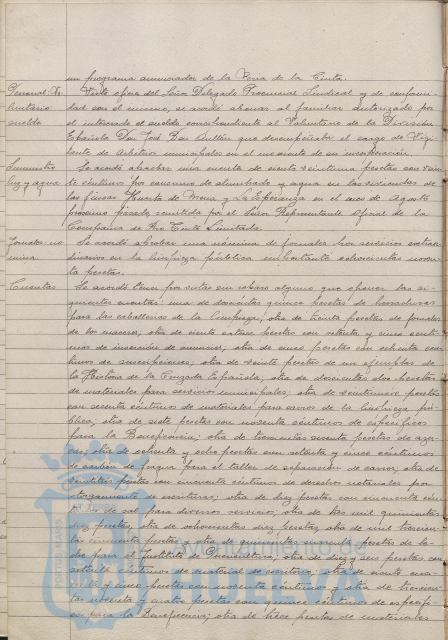 un programa anunciador de la Feria de la Cinta.
Personal. Vo- Visto oficio del Señor Delegado Provincial Sindical y de conformi-
luntario dad con el mismo, se acordó abonar al familiar autorizado por
sueldo el interesado el sueldo correspondiente al Voluntario de la División
Española Don José que desempeñaba el cargo de Vigi-
lante de Arbitrios municipales en el momento de su incorporación.
Suministro Se acordó aprobar una cuenta de ciento veintiuna pesetas con vein-
luz y agua te céntimos por consumo de alumbrado y agua en las viviendas de
las fincas Huerta de Mena y La Esperanza en el mes de Agosto
próximo pasado, remitida por el Señor Representante Oficial de la
Compañía de Río Tinto Limitada.
Jornales nó- Se acordó aprobar una nómina de jornales por servicios extraor-
mina dinarios en la limpieza pública importante ochocientas noven-
ta pesetas.
Cuentas Se acordó tener por vistas sin reparo alguno que abonar las si-
guientes cuentas: una de doscientas quince pesetas de herraduras
para las caballerías de la limpieza; otra de treinta pesetas de jornales
de los mismos; otra de ciento catorce pesetas con setenta y cinco cénti-
mos de inserción de anuncios; otra de cinco pesetas con ochenta cén-
timos de suscripciones; otra de veinte pesetas de un ejemplar de
la Historia de la Cruzada Española; otra de doscientas dos pesetas
de materiales para servicios municipales; otra de veintinueve pesetas
con sesenta céntimos de materiales para carros de la limpieza pú-
blica; otra de siete pesetas con noventa céntimos de específicos
para la Beneficencia; otra de trescientas sesenta pesetas de
otra de ochenta y ocho pesetas con setenta y cinco céntimos
de carbón de fragua para el taller de reparación de carros; otra de
pesetas con cincuenta céntimos de derechos notariales por
otorgamiento de escrituras; otra de diez pesetas con cincuenta cén-
timos de sal para diversos servicios; otra de tres mil quinientas
diez pesetas, otra de ochocientas diez pesetas, otra de mil trescien-
tas cincuenta pesetas y otra de quinientas sesenta pesetas de le-
che para el Instituto de Puericultura; otra de diez y seis pesetas con
setenta céntimos de material de escritorio; otra de ciento
y cinco pesetas con noventa céntimos y otra de trescien-
tas noventa y cuatro pesetas con quince céntimos de específi-
cos para la Beneficencia; otra de trece pesetas de materiales
PORTUS MARIS
Ayuntamiento de
HUELVA